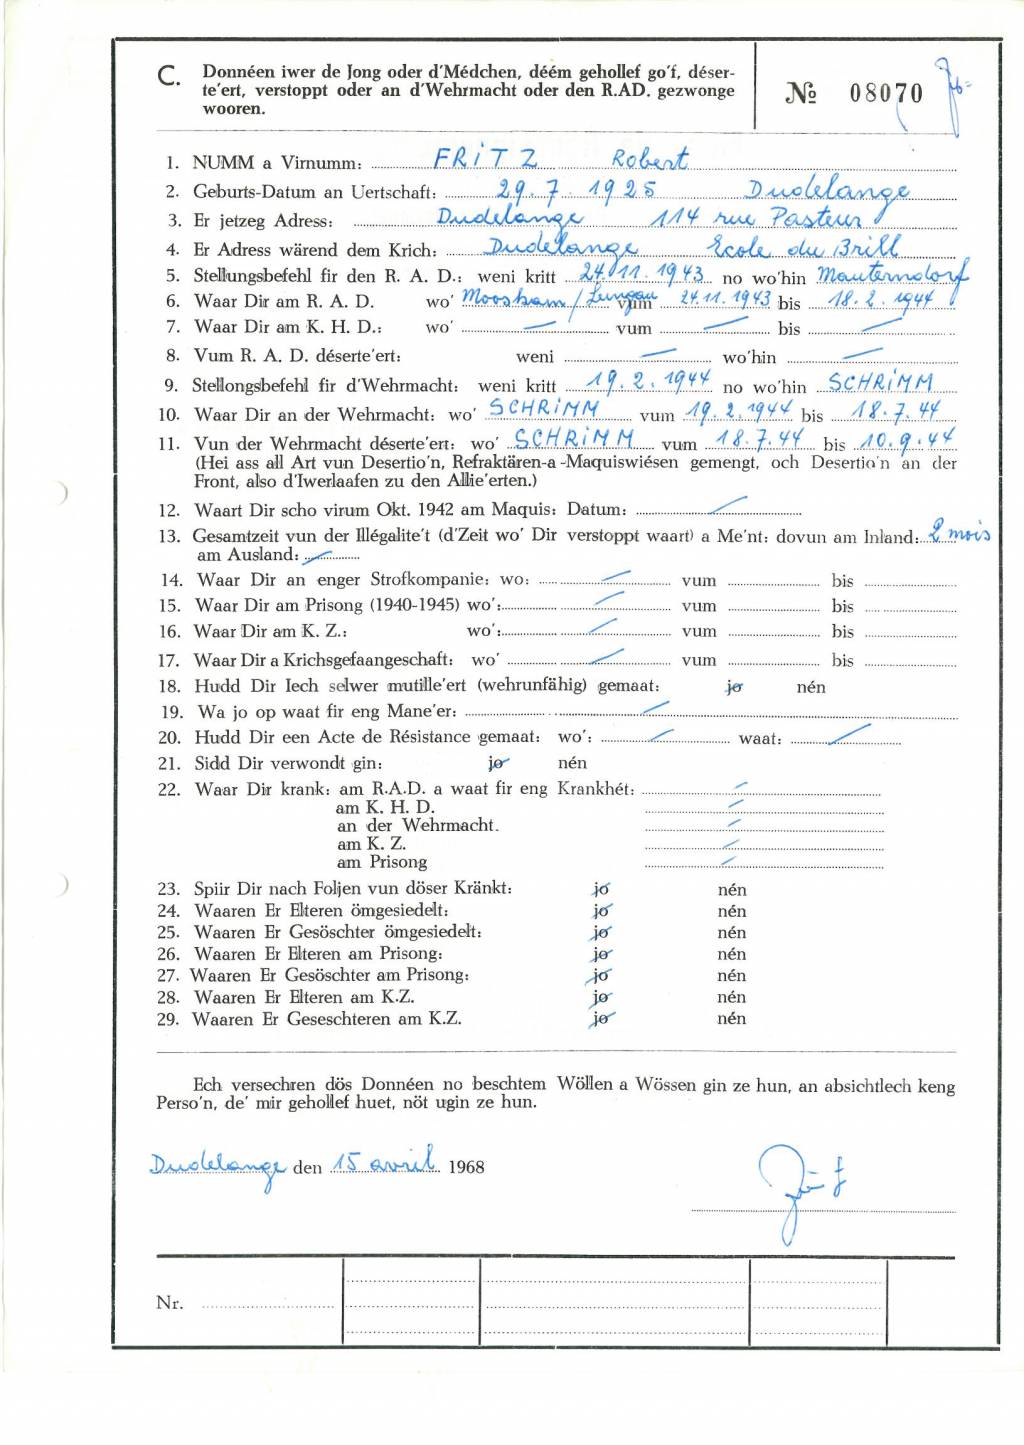 C. Donnéen iwer de Jong oder d'Médchen, déém gehollef go'f, déser-
te'ert, verstoppt oder an d'Wehrmacht oder den R.AD. gezwonge
wooren.
№ 08070
1. NUMM a Virnumm: FRITZ Robert
2. Geburts-Datum an Uertschaft: 29.7.1925 Dudelange
3. Er jetzeg Adress: Dudelange 114 rue Pasteur
4. Er Adress wärend dem Krich: Dudelange Ecole du Brill
5. Stellungsbefehl fir den R. A. D.: weni kritt 24.11.1943 no wo'hin Mauterndorf
6. Waar Dir am R. A. D. wo' Moosham/Lungau vum 24.11.1943 bis 18.2.1944
7. Waar Dir am K. H. D.: wo' — vum — bis —
8. Vum R. A. D. déserte'ert: weni — wo'hin —
9. Stellongsbefehl fir d'Wehrmacht: weni kritt 19.2.1944 no wo'hin SCHRIMM
10. Waar Dir an der Wehrmacht: wo' SCHRIMM vum 19.2.1944 bis 18.7.44
11. Vun der Wehrmacht déserte'ert: wo' SCHRIMM vum 18.7.44 bis 10.9.44
(Hei ass all Art vun Desertio'n, Refraktären-a-Maquiswiésen gemengt, och Desertio'n an der
Front, also d'Iwerlaafen zu den Allie'erten.)
12. Waart Dir scho virum Okt. 1942 am Maquis: Datum: —
13. Gesamtzeit vun der Illégalite't (d'Zeit wo' Dir verstoppt waart) a Me'nt: dovun am Inland: 2 mois
am Ausland: —
14. Waar Dir an enger Strofkompanie: wo: — vum bis
15. Waar Dir am Prisong (1940-1945) wo': — vum bis
16. Waar Dir am K. Z.: wo': — vum bis
17. Waar Dir a Krichsgefaangeschaft: wo' — vum bis
18. Hudd Dir Iech selwer mutille'ert (wehrunfähig) gemaat: jo nén
19. Wa jo op waat fir eng Mane'er: —
20. Hudd Dir een Acte de Résistance gemaat: wo': — waat: —
21. Sidd Dir verwondt gin: jo nén
22. Waar Dir krank: am R.A.D. a waat fir eng Krankhét: —
am K. H. D. —
an der Wehrmacht. —
am K. Z. —
am Prisong —
23. Spiir Dir nach Foljen vun döser Kränkt: jo nén
24. Waaren Er Elteren ömgesiedelt: jo nén
25. Waaren Er Gesöschter ömgesiedelt: jo nén
26. Waaren Er Elteren am Prisong: jo nén
27. Waaren Er Gesöschter am Prisong: jo nén
28. Waaren Er Elteren am K.Z. jo nén
29. Waaren Er Geseschteren am K.Z. jo nén
Ech versechren dös Donnéen no beschtem Wöllen a Wössen gin ze hun, an absichtlech keng
Perso'n, de' mir gehollef huet, nöt ugin ze hun.
Dudelange den 15 avril 1968
Nr.